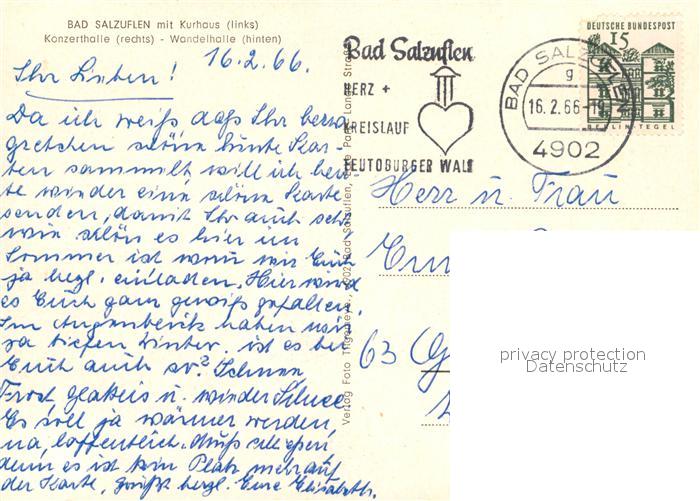 BAD SALZUFLEN mit Kurhaus (links)
Konzerthalle (rechts) - Wandelhalle (hinten)
16.2.66.
Ihr Lieben!
Da ich weiß daß Ihr
gretchen schöne bunte Kar-
ten sammelt will ich heu-
te wieder eine schöne Karte
senden, damit Ihr auch seht
wie schön es hier im
Sommer ist wozu wir Euch
ja herzl. einladen. Hier wird
es Euch ganz gewiß gefallen.
Im Augenblick haben wir
ja tiefen Winter. ist es bei
Euch auch so? Schnee
Frost Glatteis u. wieder Schnee
Es soll ja wärmer werden,
na, hoffentlich. Muß schließen,
denn es ist kein Platz mehr auf
der Karte, grüßt herzl. Eure Elisabeth.
Bad Salzuflen
HERZ +
KREISLAUF
TEUTOBURGER WALD
BAD SALZUFLEN
g
16.2.66-19
4902
DEUTSCHE BUNDESPOST
15
BERLIN-TEGEL
Herr u. Frau
63
privacy protection
Datenschutz
Verlag Foto